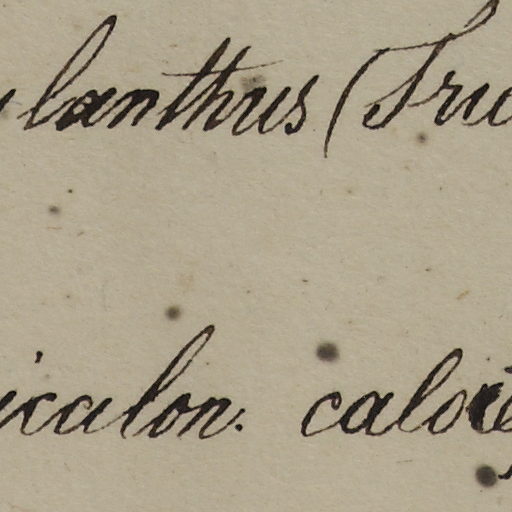 lanthus (Tric
icalon. calore